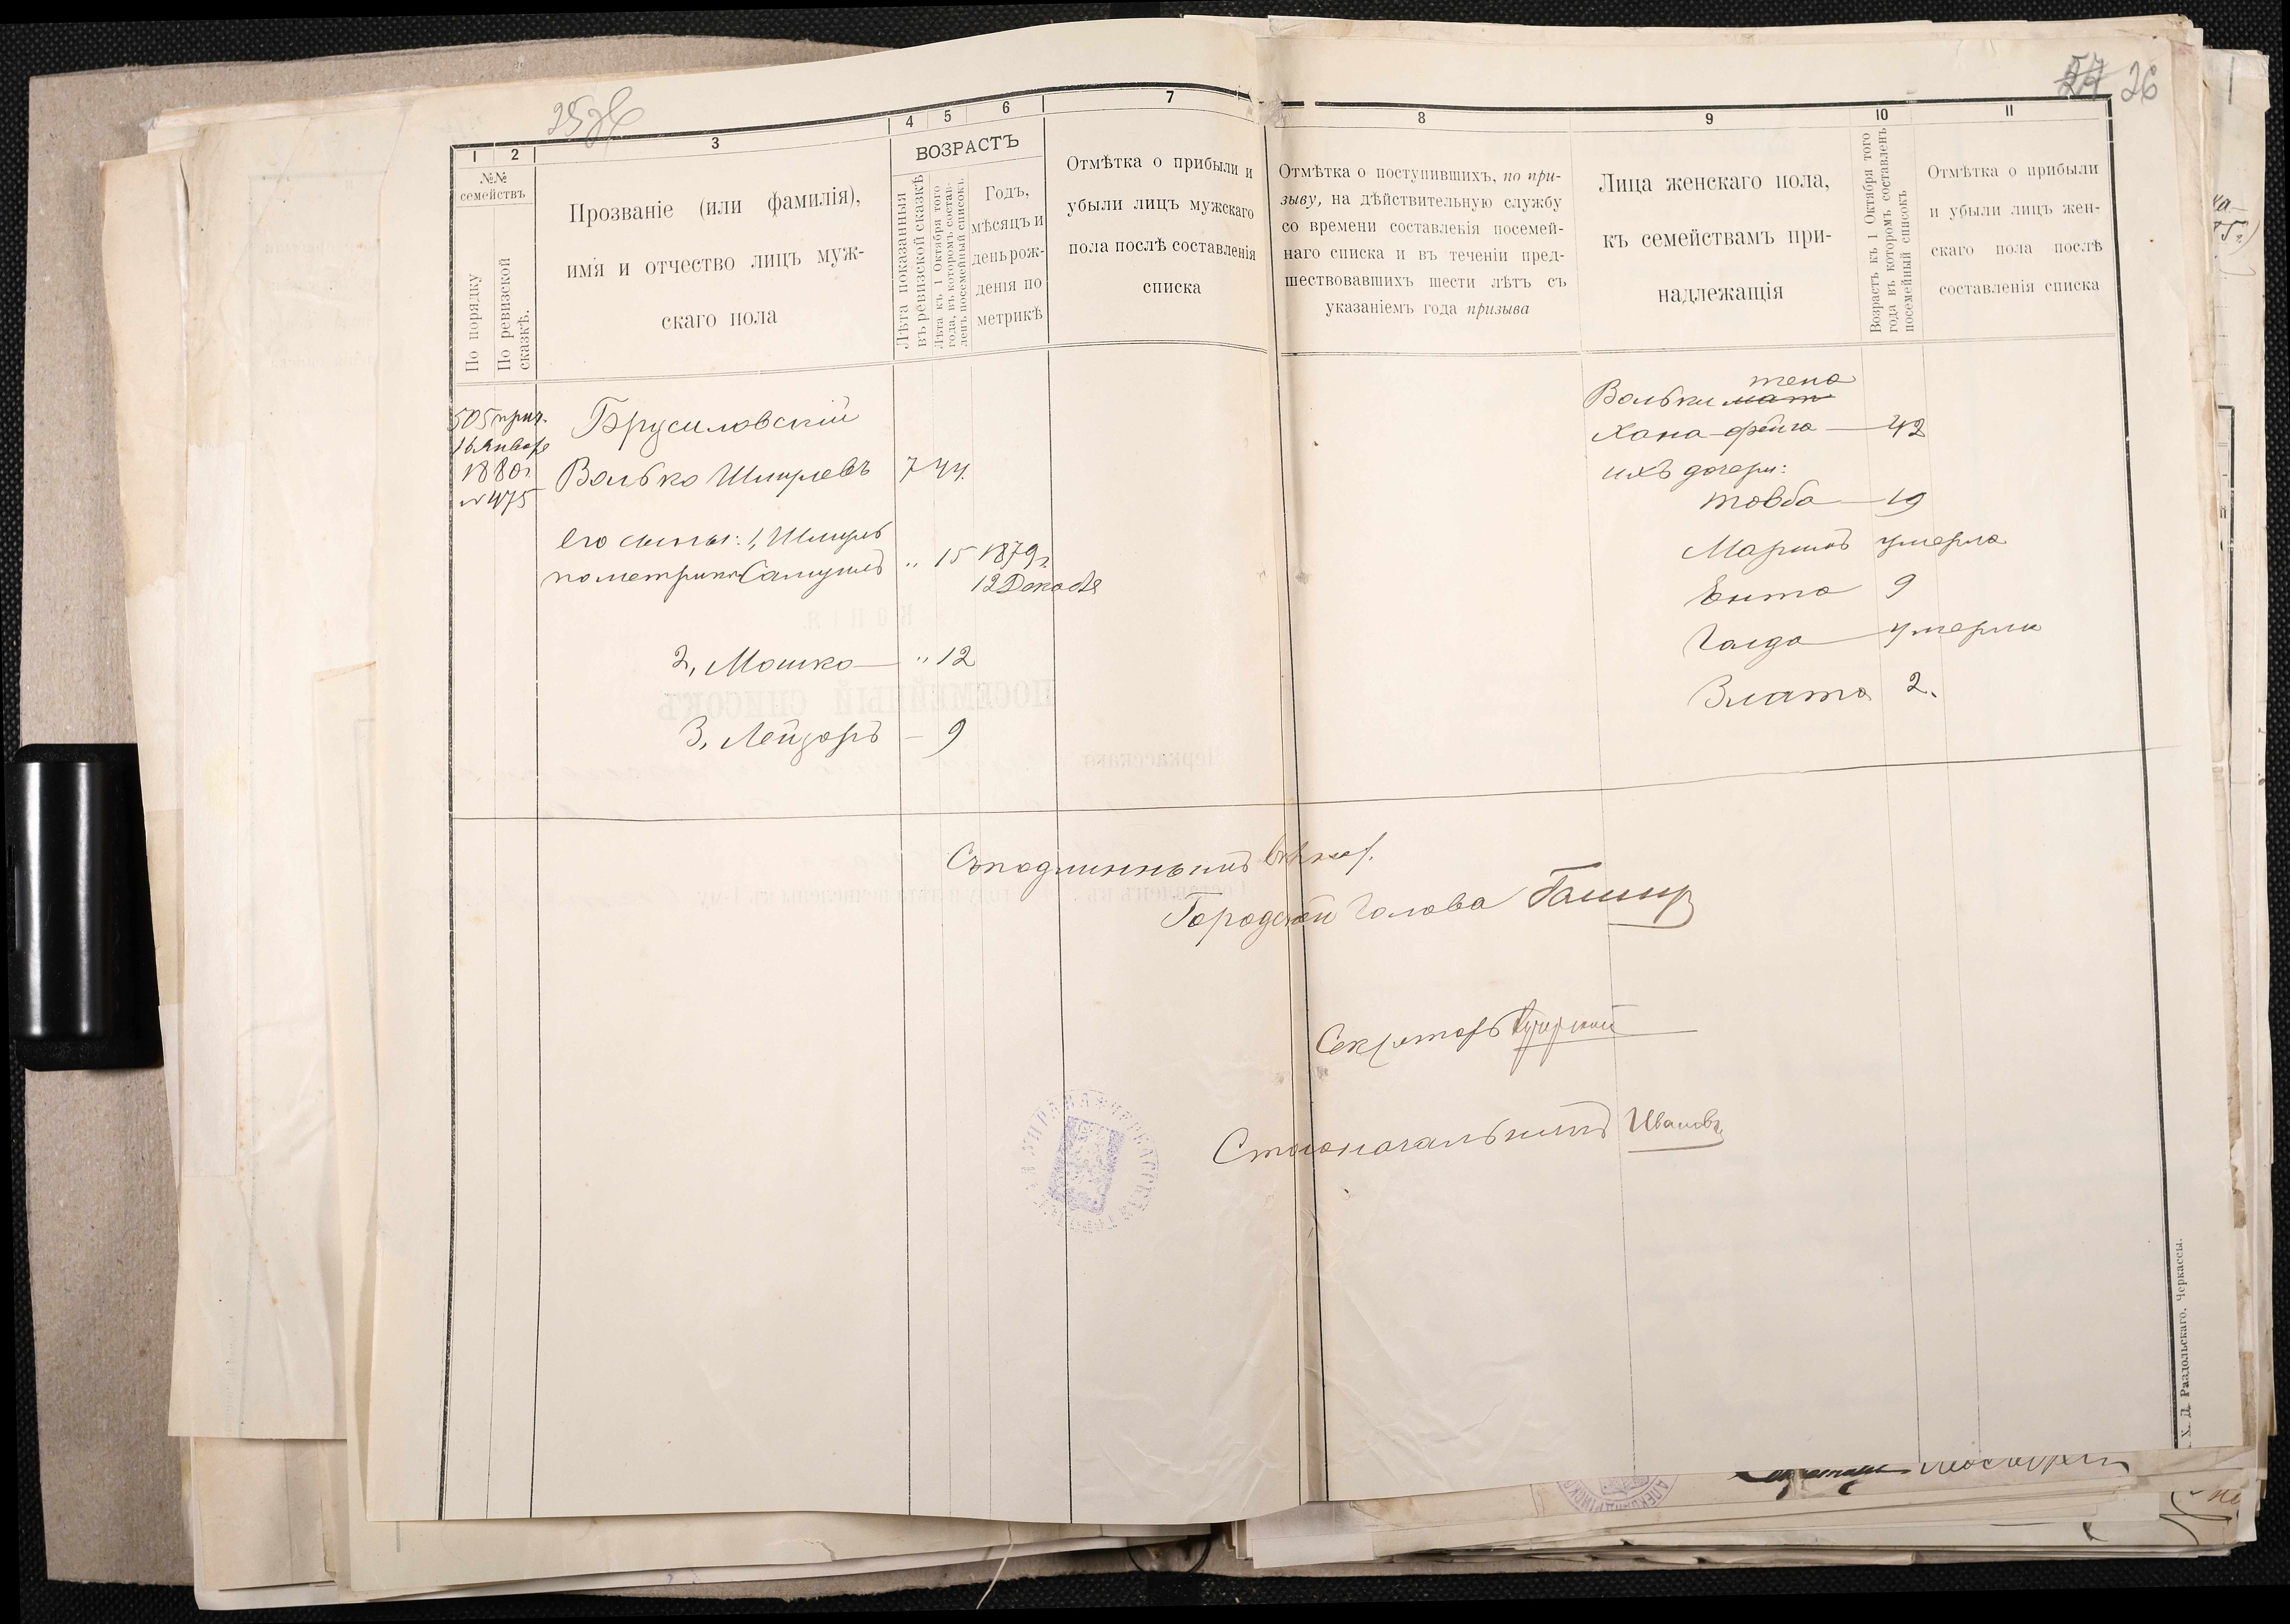 25
54 26
1
2
3
4
5
6
7
8
9
10
11
№№
семействъ
По порядку
По ревизской
сказкѣ.
Прозваніе (или фамилія),
имя и отчество лицъ муж-
скаго пола
ВОЗРАСТЪ
Лѣта показанныя
въ ревизской сказкѣ
Лѣта къ 1 Октября того
года, въ которомъ состав-
ленъ посемейный списокъ.
Годъ,
мѣсяцъ и
день рож-
денія по
метрикѣ
Отмѣтка о прибыли и
убыли лицъ мужскаго
пола послѣ составленія
списка
Отмѣтка о поступившихъ, по при-
зыву, на дѣйствительную службу
со времени составленія посемей-
наго списка и въ теченіи пред-
шествовавшихъ шести лѣтъ съ
указаніемъ года призыва
Лица женскаго пола,
къ семействамъ при-
надлежащія
Возрастъ къ 1 Октября того
года въ которомъ составленъ
посемейный списокъ
Отмѣтка о прибыли
и убыли лицъ жен-
скаго пола послѣ
составленія списка
505 прич.
16 Января
1880 г.
№ 475
Брусиловскій
Волько Шмулевъ 7 44.
Его сыны: 1, Шмуль
по метрикѣ Самуилъ " 15 1879 г.
12 Декабя
2, Мошко — " 12
3, Лейзоръ — 9
жена
Вольки мат
Хана-фейга — 42
ихъ дочери:
Товба — 19
Маріимъ умерла
Ента 9
Голда — умерла
Злата 2.
Съ подлиннымъ вѣрно.
Городской Голова
Секретарь
Столоначальникъ Ивановъ
ПОСЕМЕЙНЫЙ СПИСОКЪ
КОПІЯ.
Черкасскаго
Х. Д. Раздольскаго, Черкассы.